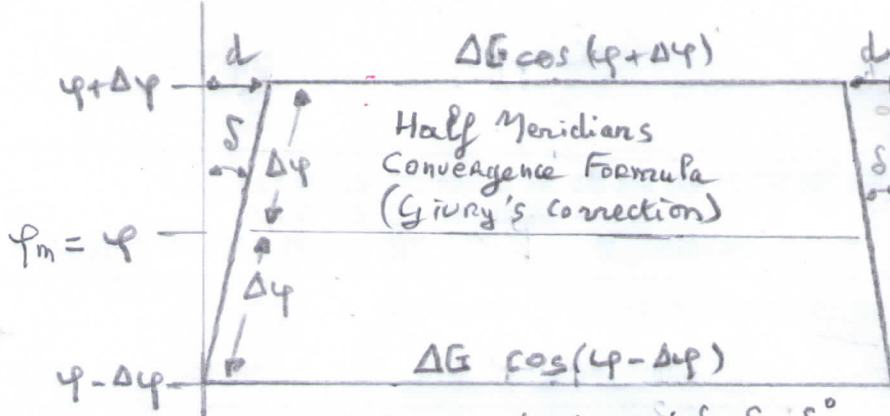 d ΔG cos (φ+Δφ) d
φ+Δφ
Half Meridians
δ Δφ Convergence Formula δ
(Givry's correction)
φm = φ
Δφ
ΔG cos(φ-Δφ)
φ-Δφ